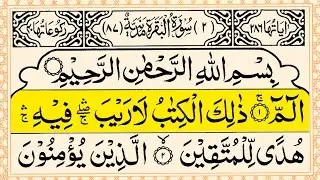 اٰیَاتُهَا ٢٨٦ (٢) سُوْرَةُ الْبَقَرَةِ مَدَنِیَّةٌ (٨٧) رُكُوْعَاتُهَا
بِسْمِ اللّٰهِ الرَّحْمٰنِ الرَّحِیْمِ
الٓمّٓ ۚ﴿۱﴾ ذٰلِكَ الْكِتٰبُ لَا رَیْبَ ۛۖ فِیْهِ ۛۚ
هُدًی لِّلْمُتَّقِیْنَ ﴿۲﴾ الَّذِیْنَ یُؤْمِنُوْنَ